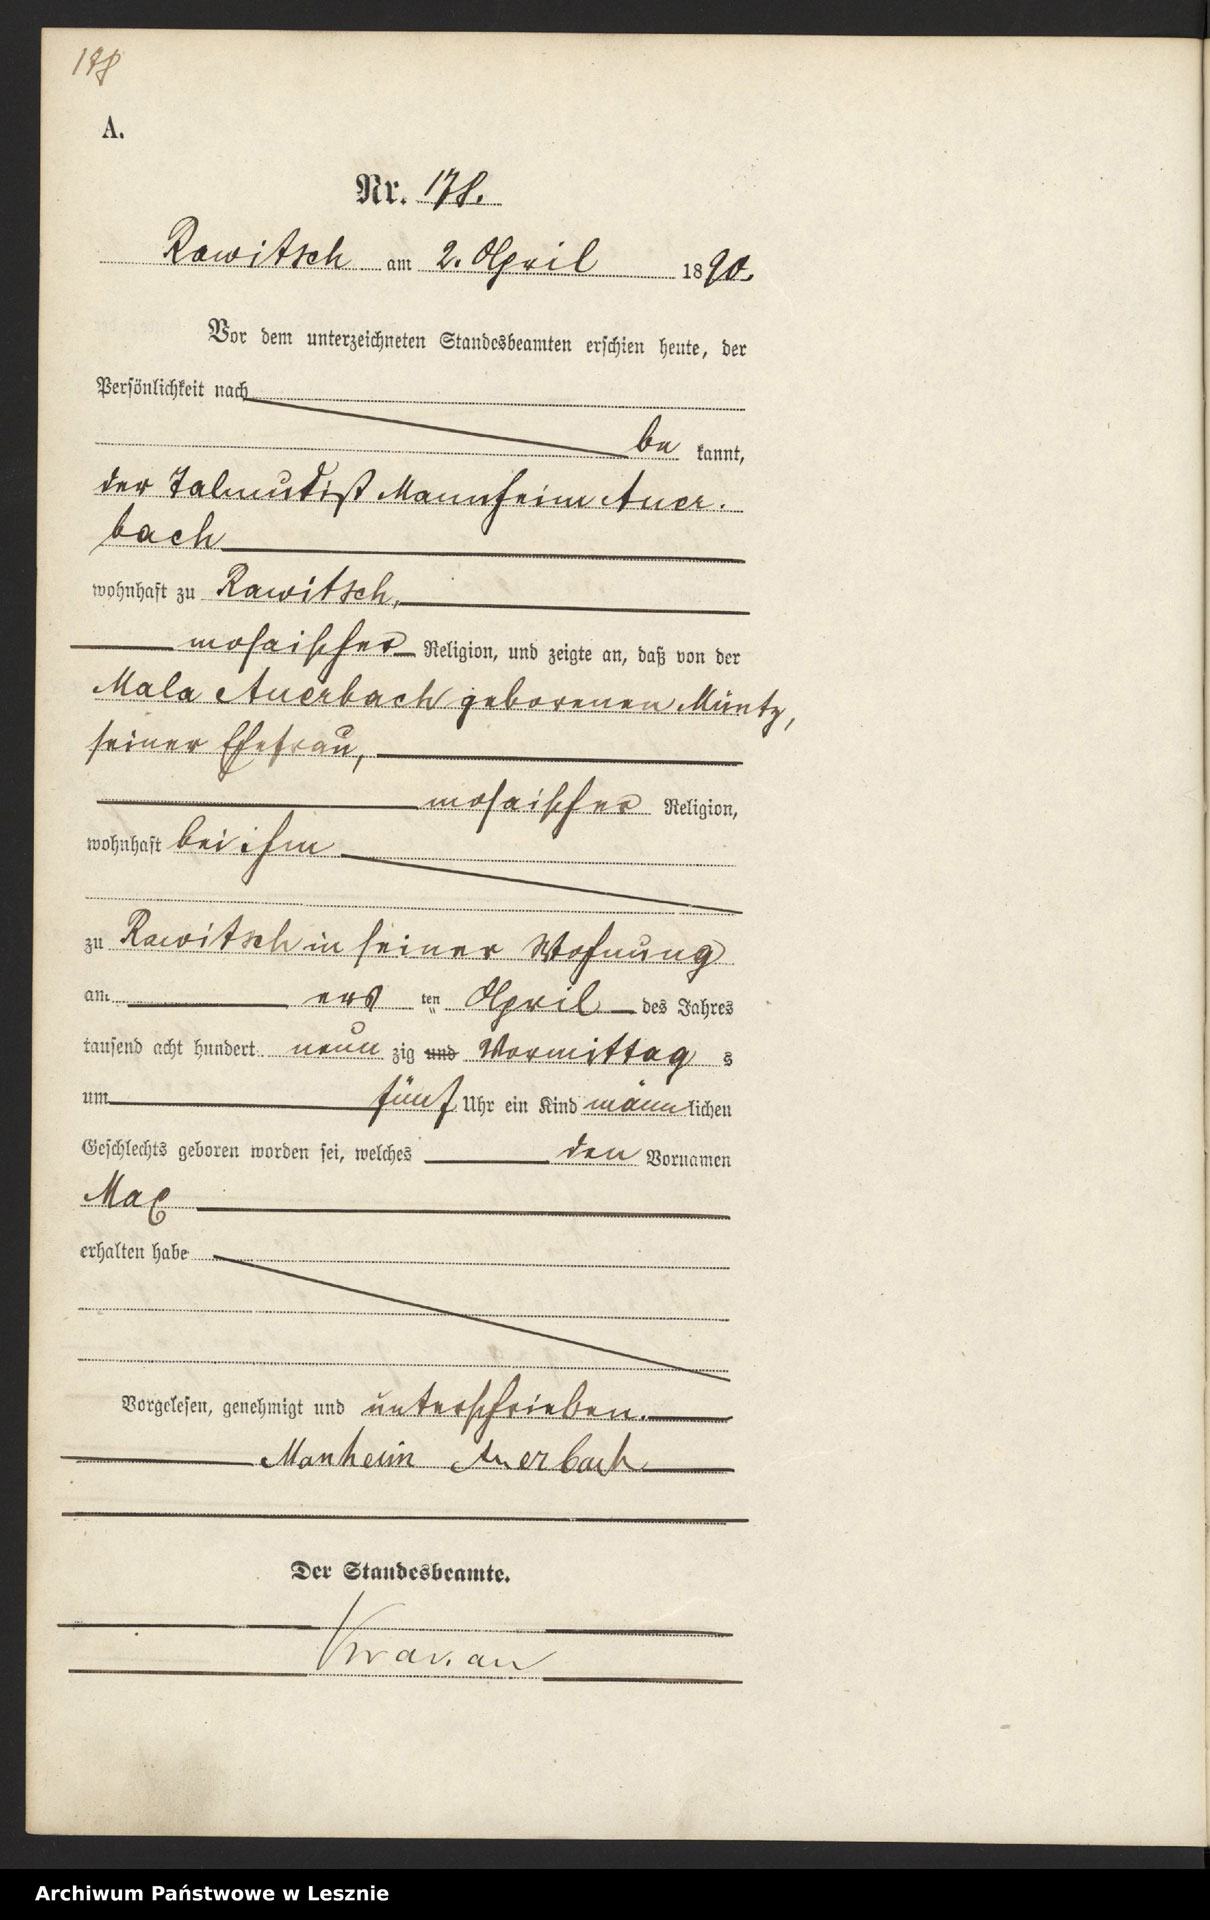 A.
Nr. 178.
Rawitsch am 2. April 1890.
Vor dem unterzeichneten Standesbeamten erschien heute, der
Persönlichkeit nach
be kannt,
der Talmudist Mannheim Auer-
bach
wohnhaft zu Rawitsch,
mosaischer Religion, und zeigte an, daß von der
Mala Auerbach geborenen Müntz,
seiner Ehefrau,
mosaischer Religion,
wohnhaft bei ihm
zu Rawitsch in seiner Wohnung
am ers ten April des Jahres
tausend acht hundert neun zig und Vormittag s
um fünf Uhr ein Kind männlichen
Geschlechts geboren worden sei, welches den Vornamen
Max
erhalten habe
Vorgelesen, genehmigt und unterschrieben.
Manheim Auerbach
Der Standesbeamte.
Archiwum Państwowe w Lesznie